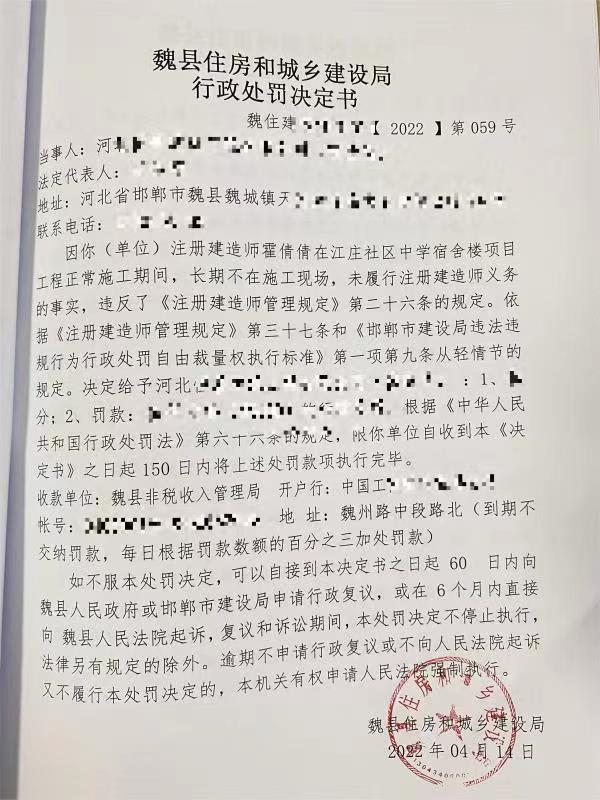 魏县住房和城乡建设局
行政处罚决定书
魏住建【 2022 】第 059 号
当事人：河
法定代表人：
地址：河北省邯郸市魏县魏城镇天
联系电话：
因你（单位）注册建造师霍倩倩在江庄社区中学宿舍楼项目
工程正常施工期间，长期不在施工现场，未履行注册建造师义务
的事实，违反了《注册建造师管理规定》第二十六条的规定。依
据《注册建造师管理规定》第三十七条和《邯郸市建设局违法违
规行为行政处罚自由裁量权执行标准》第一项第九条从轻情节的
规定。决定给予河北 ：1、
分；2、罚款： 根据《中华人民
共和国行政处罚法》第六十六条的规定，限你单位自收到本《决
定书》之日起 150 日内将上述处罚款项执行完毕。
收款单位：魏县非税收入管理局 开户行：中国工
帐号： 地 址：魏州路中段路北（到期不
交纳罚款，每日根据罚款数额的百分之三加处罚款）
如不服本处罚决定，可以自接到本决定书之日起 60 日内向
魏县人民政府或邯郸市建设局申请行政复议，或在 6 个月内直接
向 魏县人民法院起诉，复议和诉讼期间，本处罚决定不停止执行，
法律另有规定的除外。逾期不申请行政复议或不向人民法院起诉
又不履行本处罚决定的，本机关有权申请人民法院强制执行。
魏县住房和城乡建设局
2022 年 04 月 14 日